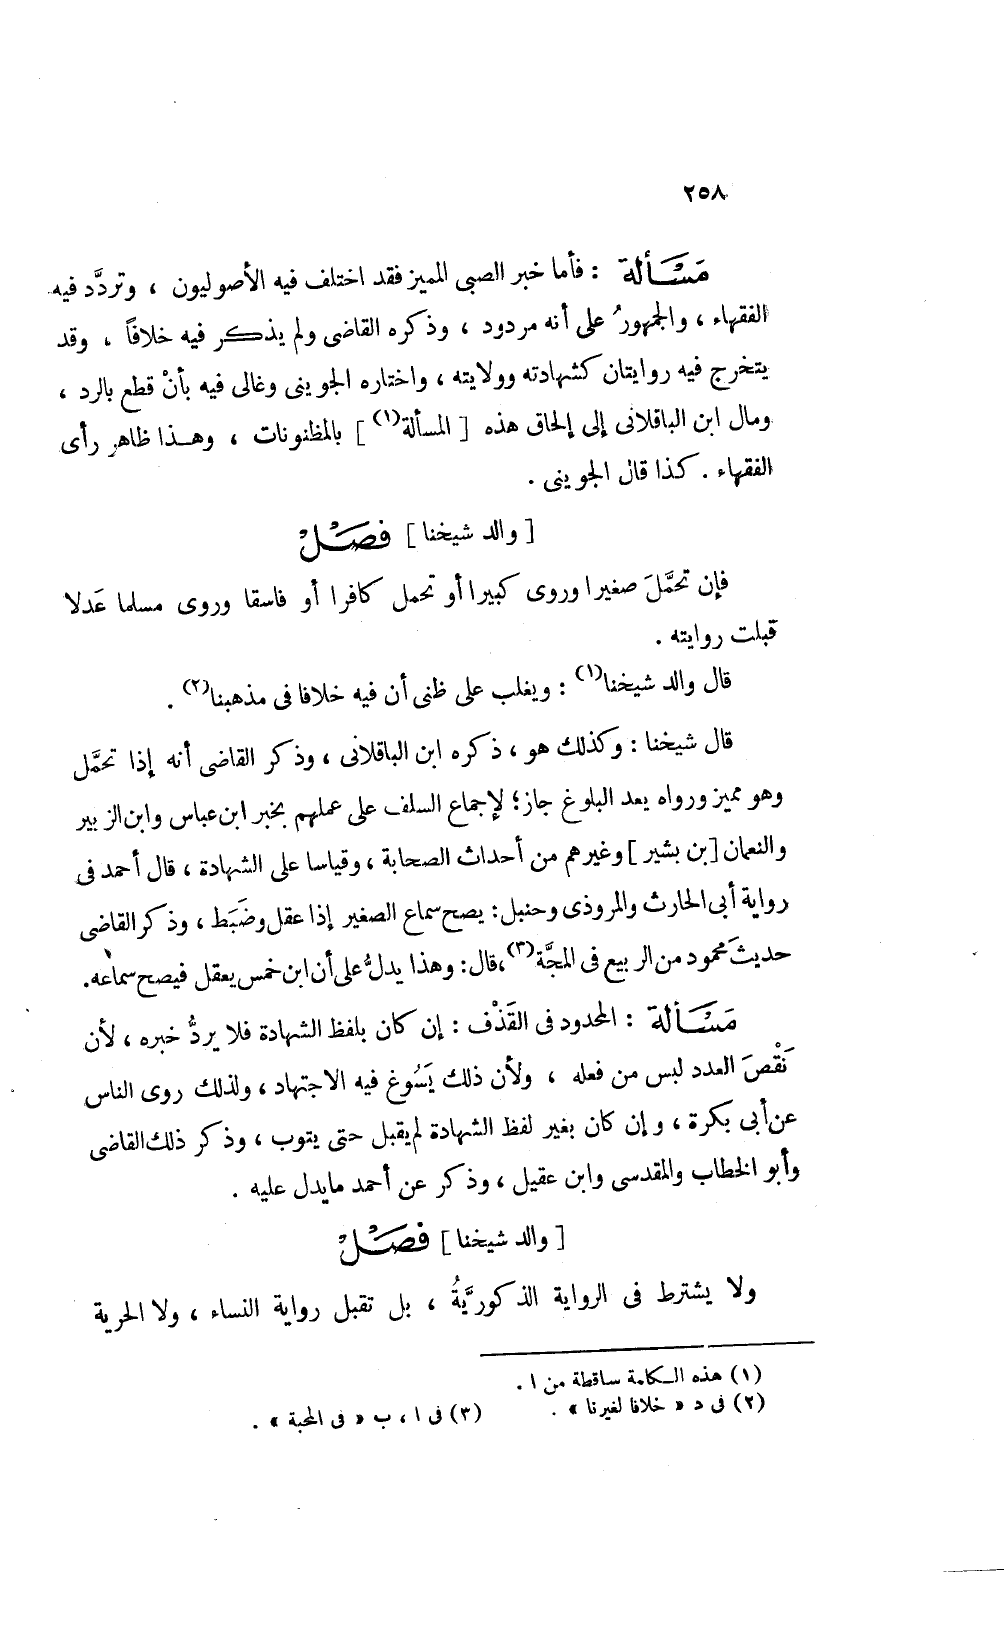 ٢٥٨
مَسْـَٔالة : فأما خبر الصبى المميز فقد اختلف فيه الأصوليون ، وتردَّد فيه
الفقهاء ، والجمهورُ على أنه مردود ، وذكره القاضى ولم يذكر فيه خلافاً ، وقد
يتخرج فيه روايتان كشهادته وولايته ، واختاره الجوينى وغالى فيه بأنْ قطع بالرد ،
ومال ابن الباقلانى إلى إلحاق هذه [ المسألة(١) ] بالمظنونات ، وهذا ظاهر رأى
الفقهاء . كذا قال الجوينى .
[ والد شيخنا ] فَصْلٌ
فإن تحمَّلَ صغيرا وروى كبيرا أو تحمل كافرا أو فاسقا وروى مسلما عَدلا
قبلت روايته .
قال والد شيخنا(١) : ويغلب على ظنى أن فيه خلافا فى مذهبنا(٢) .
قال شيخنا : وكذلك هو ، ذكره ابن الباقلانى ، وذكر القاضى أنه إذا تحمَّل
وهو مميز ورواه يعد البلوغ جاز؛ لإجماع السلف على عملهم بخبر ابن عباس وابن الزبير
والنعمان [بن بشير ] وغيرهم من أحداث الصحابة ، وقياسا على الشهادة ، قال أحمد فى
رواية أبى الحارث والمروذى وحنبل : يصح سماع الصغير إذا عقل وضَبَط ، وذكر القاضى
حديثَ محمود من الربيع فى المجَّة(٣) ، قال : وهذا يدلُّ على أن ابن خمس يعقل فيصح سماعه.
مَسْـَٔالة : المحدود فى القَذْف : إن كان بلفظ الشهادة فلا يردُّ خبره ، لأن
نَقْصَ العدد لبس من فعله ، ولأن ذلك يَسُوغ فيه الاجتهاد ، ولذلك روى الناس
عن أبى بكرة ، وإن كان بغير لفظ الشهادة لم يقبل حتى يتوب ، وذكر ذلك القاضى
وأبو الخطاب والمقدسى وابن عقيل ، وذكر عن أحمد مايدل عليه .
[ والد شيخنا ] فَصْلٌ
ولا يشترط فى الرواية الذكوريَّةُ ، بل تقبل رواية النساء ، ولا الحرية
(١) هذه الكلمة ساقطة من ا .
(٢) فى د « خلافا لغيرنا » . (٣) فى ا ، ب « فى المحبة » .